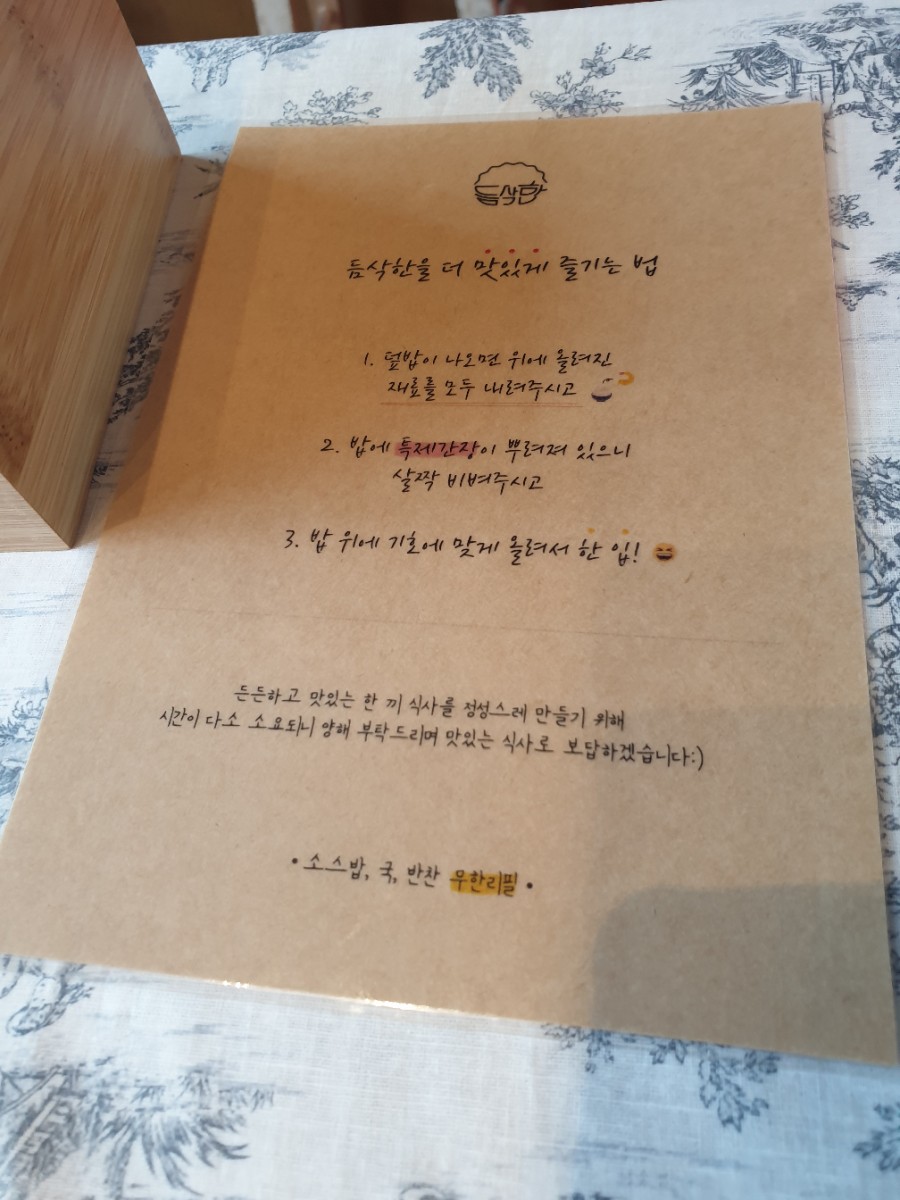 듬삭한
듬삭한을 더 맛있게 즐기는 법
1. 덮밥이 나오면 위에 올려진
재료를 모두 내려주시고
2. 밥에 특제간장이 뿌려져 있으니
살짝 비벼주시고
3. 밥 위에 기호에 맞게 올려서 한 입!
든든하고 맛있는 한 끼 식사를 정성스레 만들기 위해
시간이 다소 소요되니 양해 부탁드리며 맛있는 식사로 보답하겠습니다:)
• 소스밥, 국, 반찬 무한리필 •